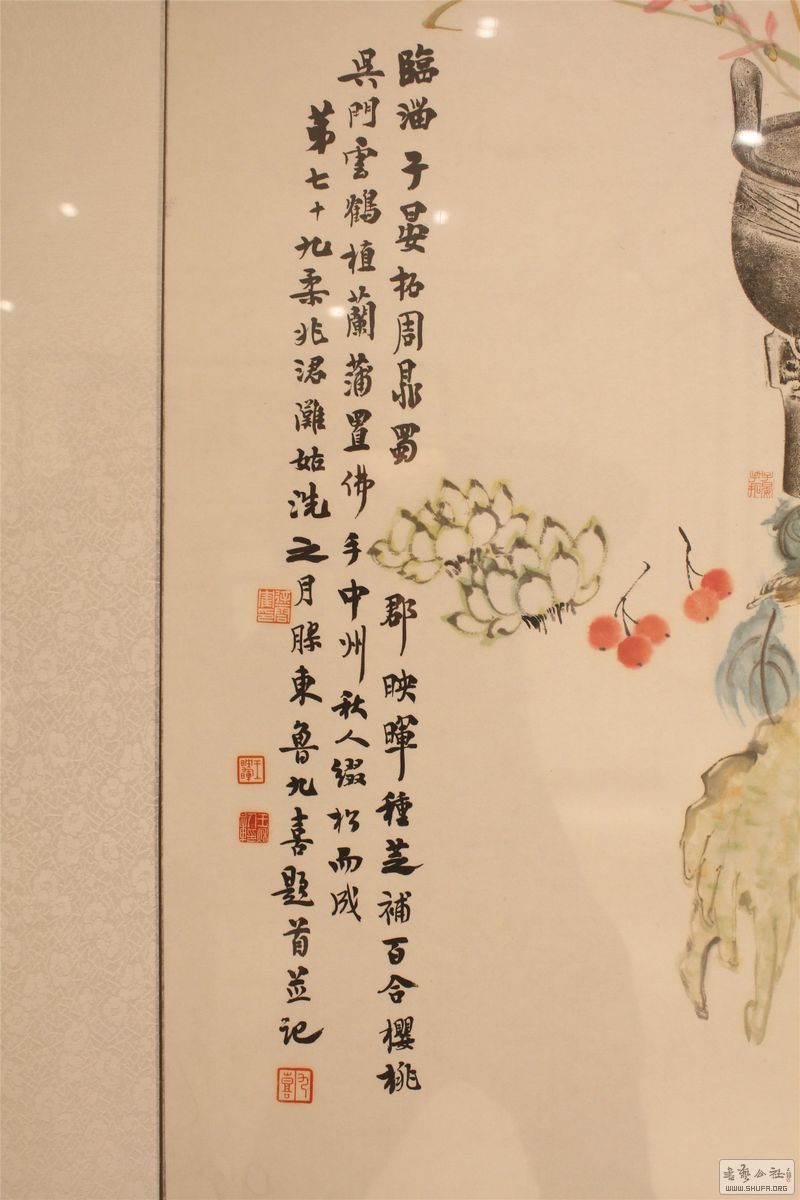 臨淄子晏拓周鼎蜀郡映暉種芝補百合櫻桃
吳門雲鶴植蘭蒲置佛手中州秋人綴松而成
苐七十九柔兆涒灘姑洗之月膠東魯九喜題首並記
九喜
书艺公社
WWW.SHUFA.ORG